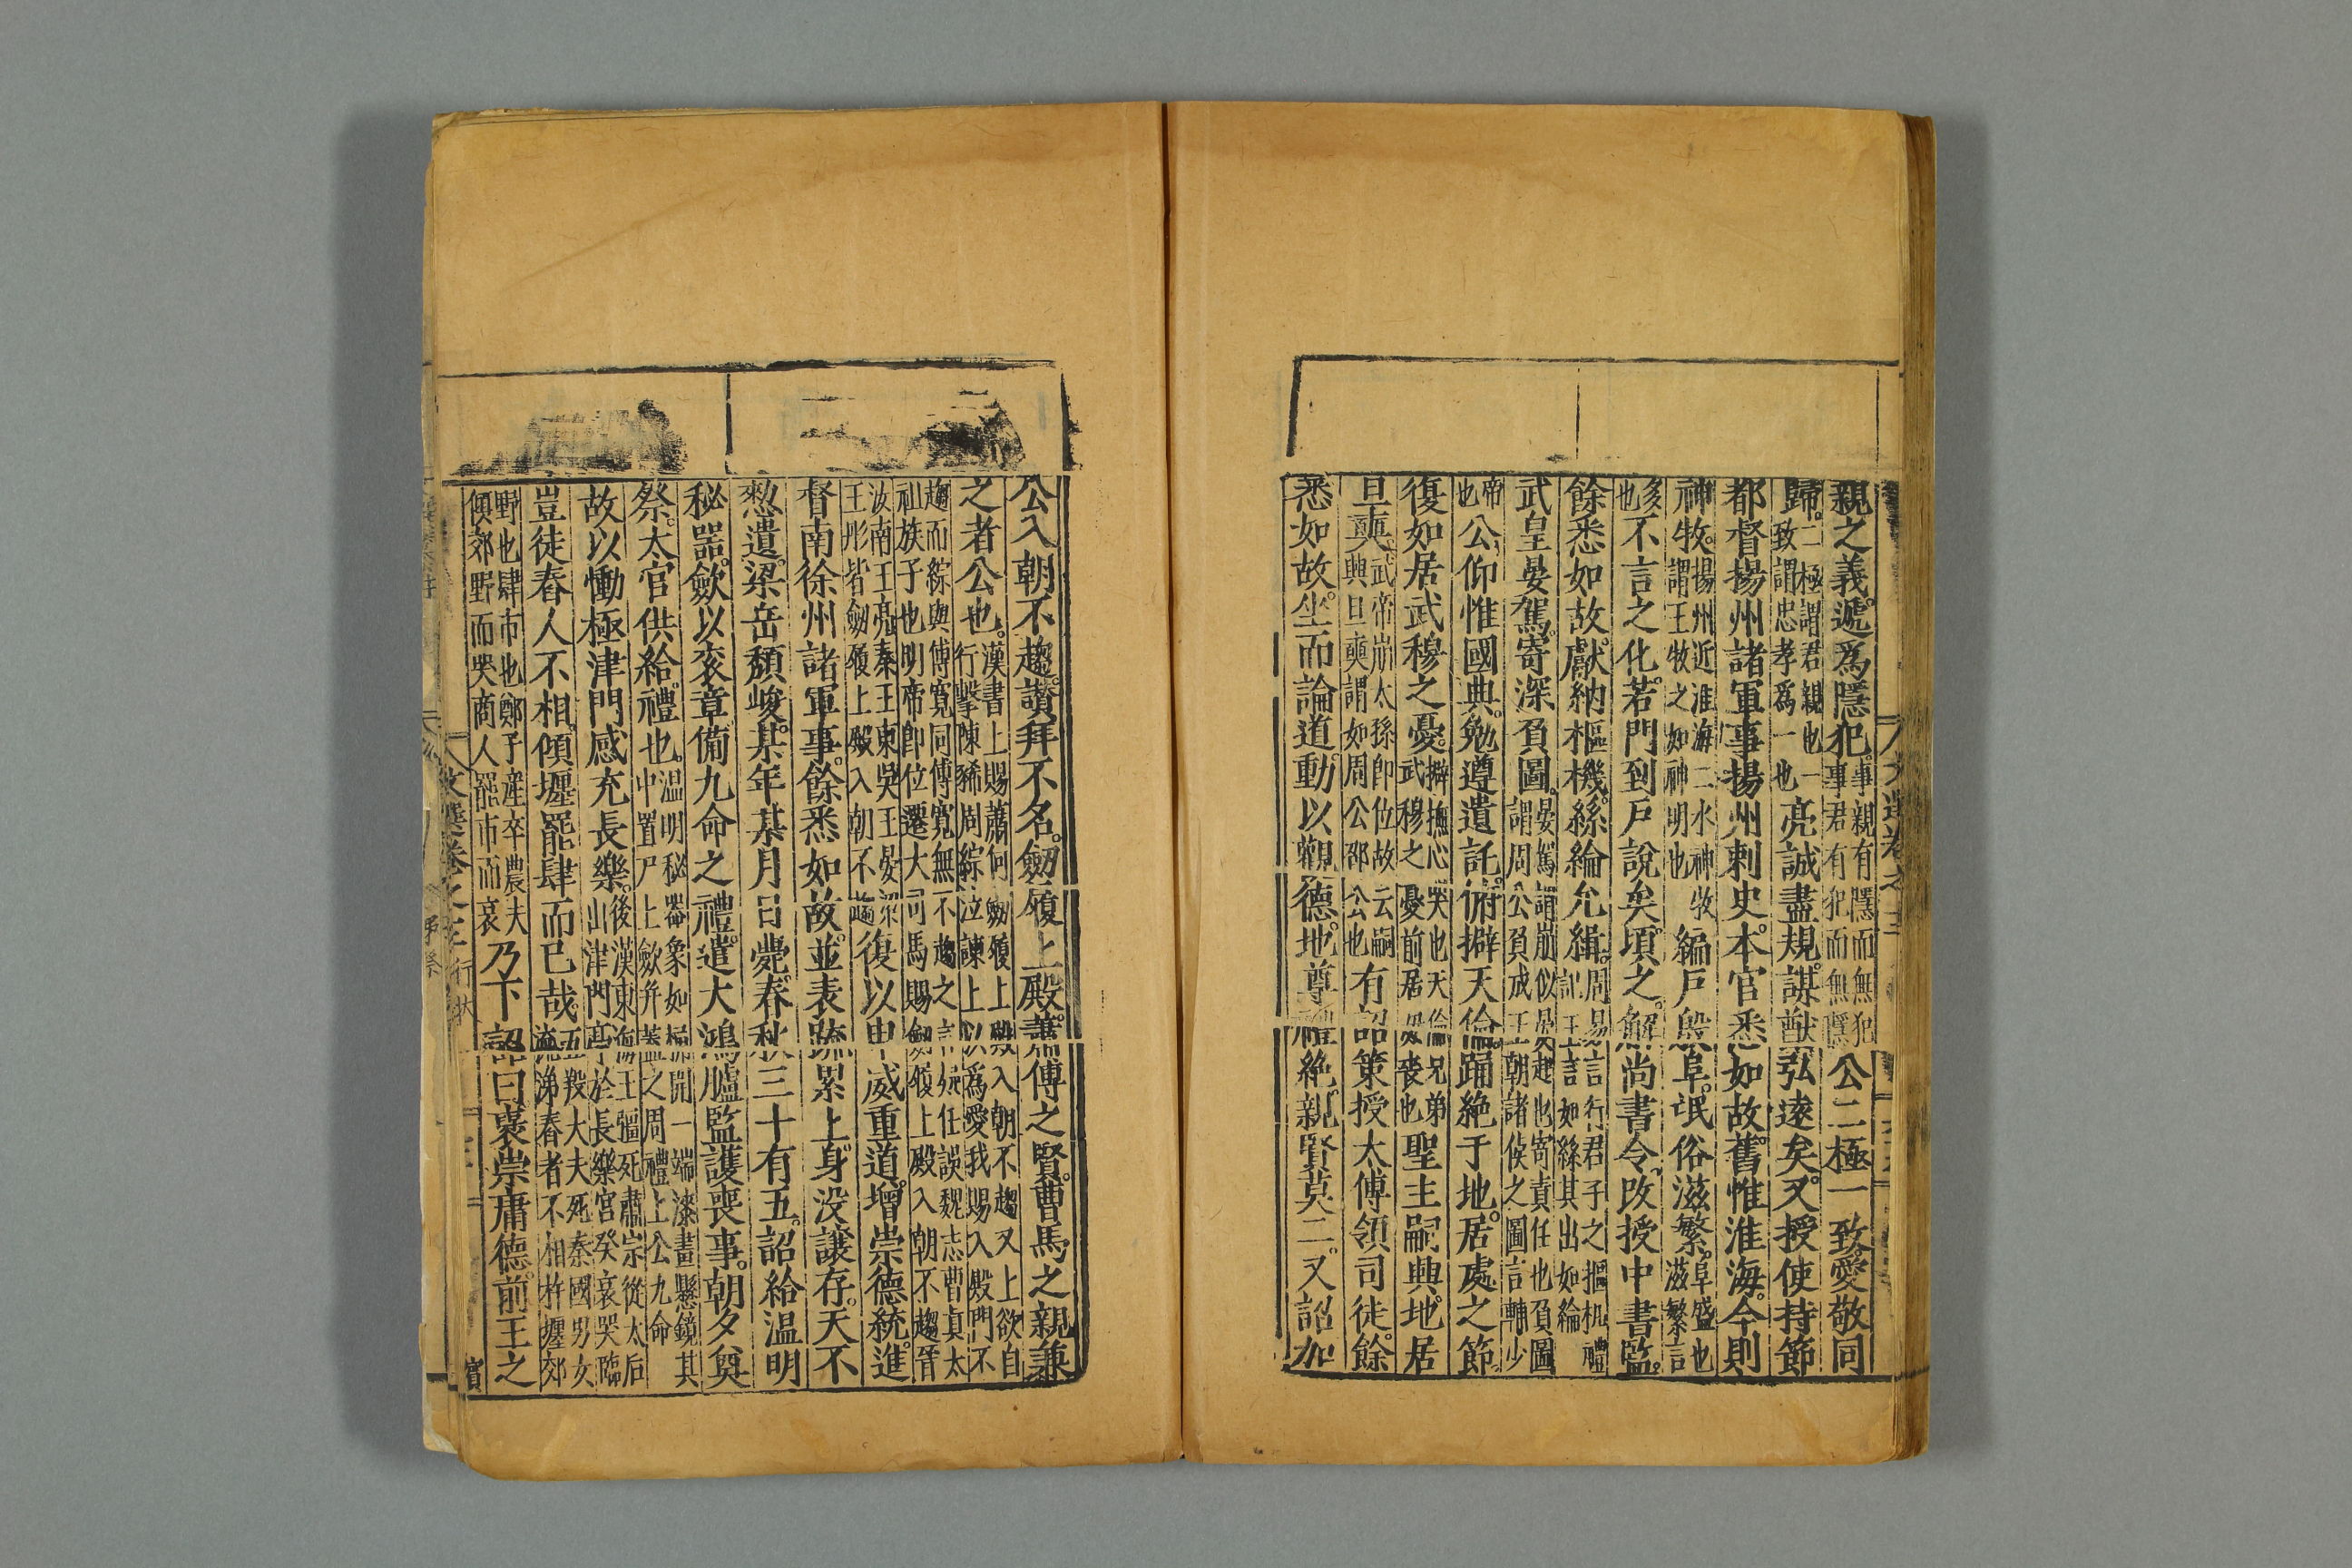 親之義遞爲隱犯事親有隱而無犯事君有犯而無隱公二極一致愛敬同
歸二極謂君親也一致謂忠孝爲一也亮誠盡規謀猷弘遠矣又授使持節
都督揚州諸軍事揚州刺史本官悉如故舊惟淮海今則
神牧揚州近淮海二水神牧謂王牧之如神明也編戶殷阜氓俗滋繁阜盛也滋繁言
多也不言之化若門到戶說矣頃之解尚書令改授中書監
餘悉如故獻納樞機絲綸允緝周易言行君子之摳机禮記王言如絲其出如綸
武皇晏駕寄深負圖晏駕謂崩似晏起也寄責任也負圖謂周公負成王朝諸侯之圖言輔少
帝也公仰惟國典俛遵遺託俯擗天倫踊絶于地居處之節
復如居武穆之憂擗撫心哭也天倫兄弟武穆之憂前居母喪也聖主嗣興地居
旦奭武帝崩太孫卽位故云嗣興旦奭謂如周公邵公也有詔策授太傅領司徒餘
悉如故坐而論道動以觀德地尊禮絶親賢莫二又詔加
公入朝不趨讚拜不名劒履上殿蕭傅之賢曹馬之親兼
之者公也漢書上賜蕭何劒履上殿入朝不趨又上欲自行擊陳豨周緤泣諫上以爲愛我賜入殿門不
趨而綜與傅寬同傅寬無不趨之言疑任誤魏志曹真太祖族子也明帝卽位遷大司馬賜劒履上殿入朝不趨晉
汝南王亮秦王柬吳王晏梁王肜皆劒履上殿入朝不趨復以申威重道增崇德統進
督南徐州諸軍事餘悉如故並表䟽累上身没讓存天不
憗遺梁岳頽峻某年某月日薨春秋三十有五詔給温明
秘器歛以衮章備九命之禮遣大鴻臚監護喪事朝夕奠
祭太官供給禮也温明秘器象如桶開一端漆畫懸鏡其中置尸上歛并蓋之周禮上公九命
故以慟極津門感充長樂後漢東海王疆死肅宗從太后出津門亭於長樂宮癸哀哭臨
豈徒舂人不相傾壥罷肆而已哉五羖大夫死秦國男女流涕舂者不相杵壥郊
野也肆市也鄭子産卒農夫傾郊野而哭商人罷市而哀乃下詔曰襃崇庸德前王之
文選卷之三行狀